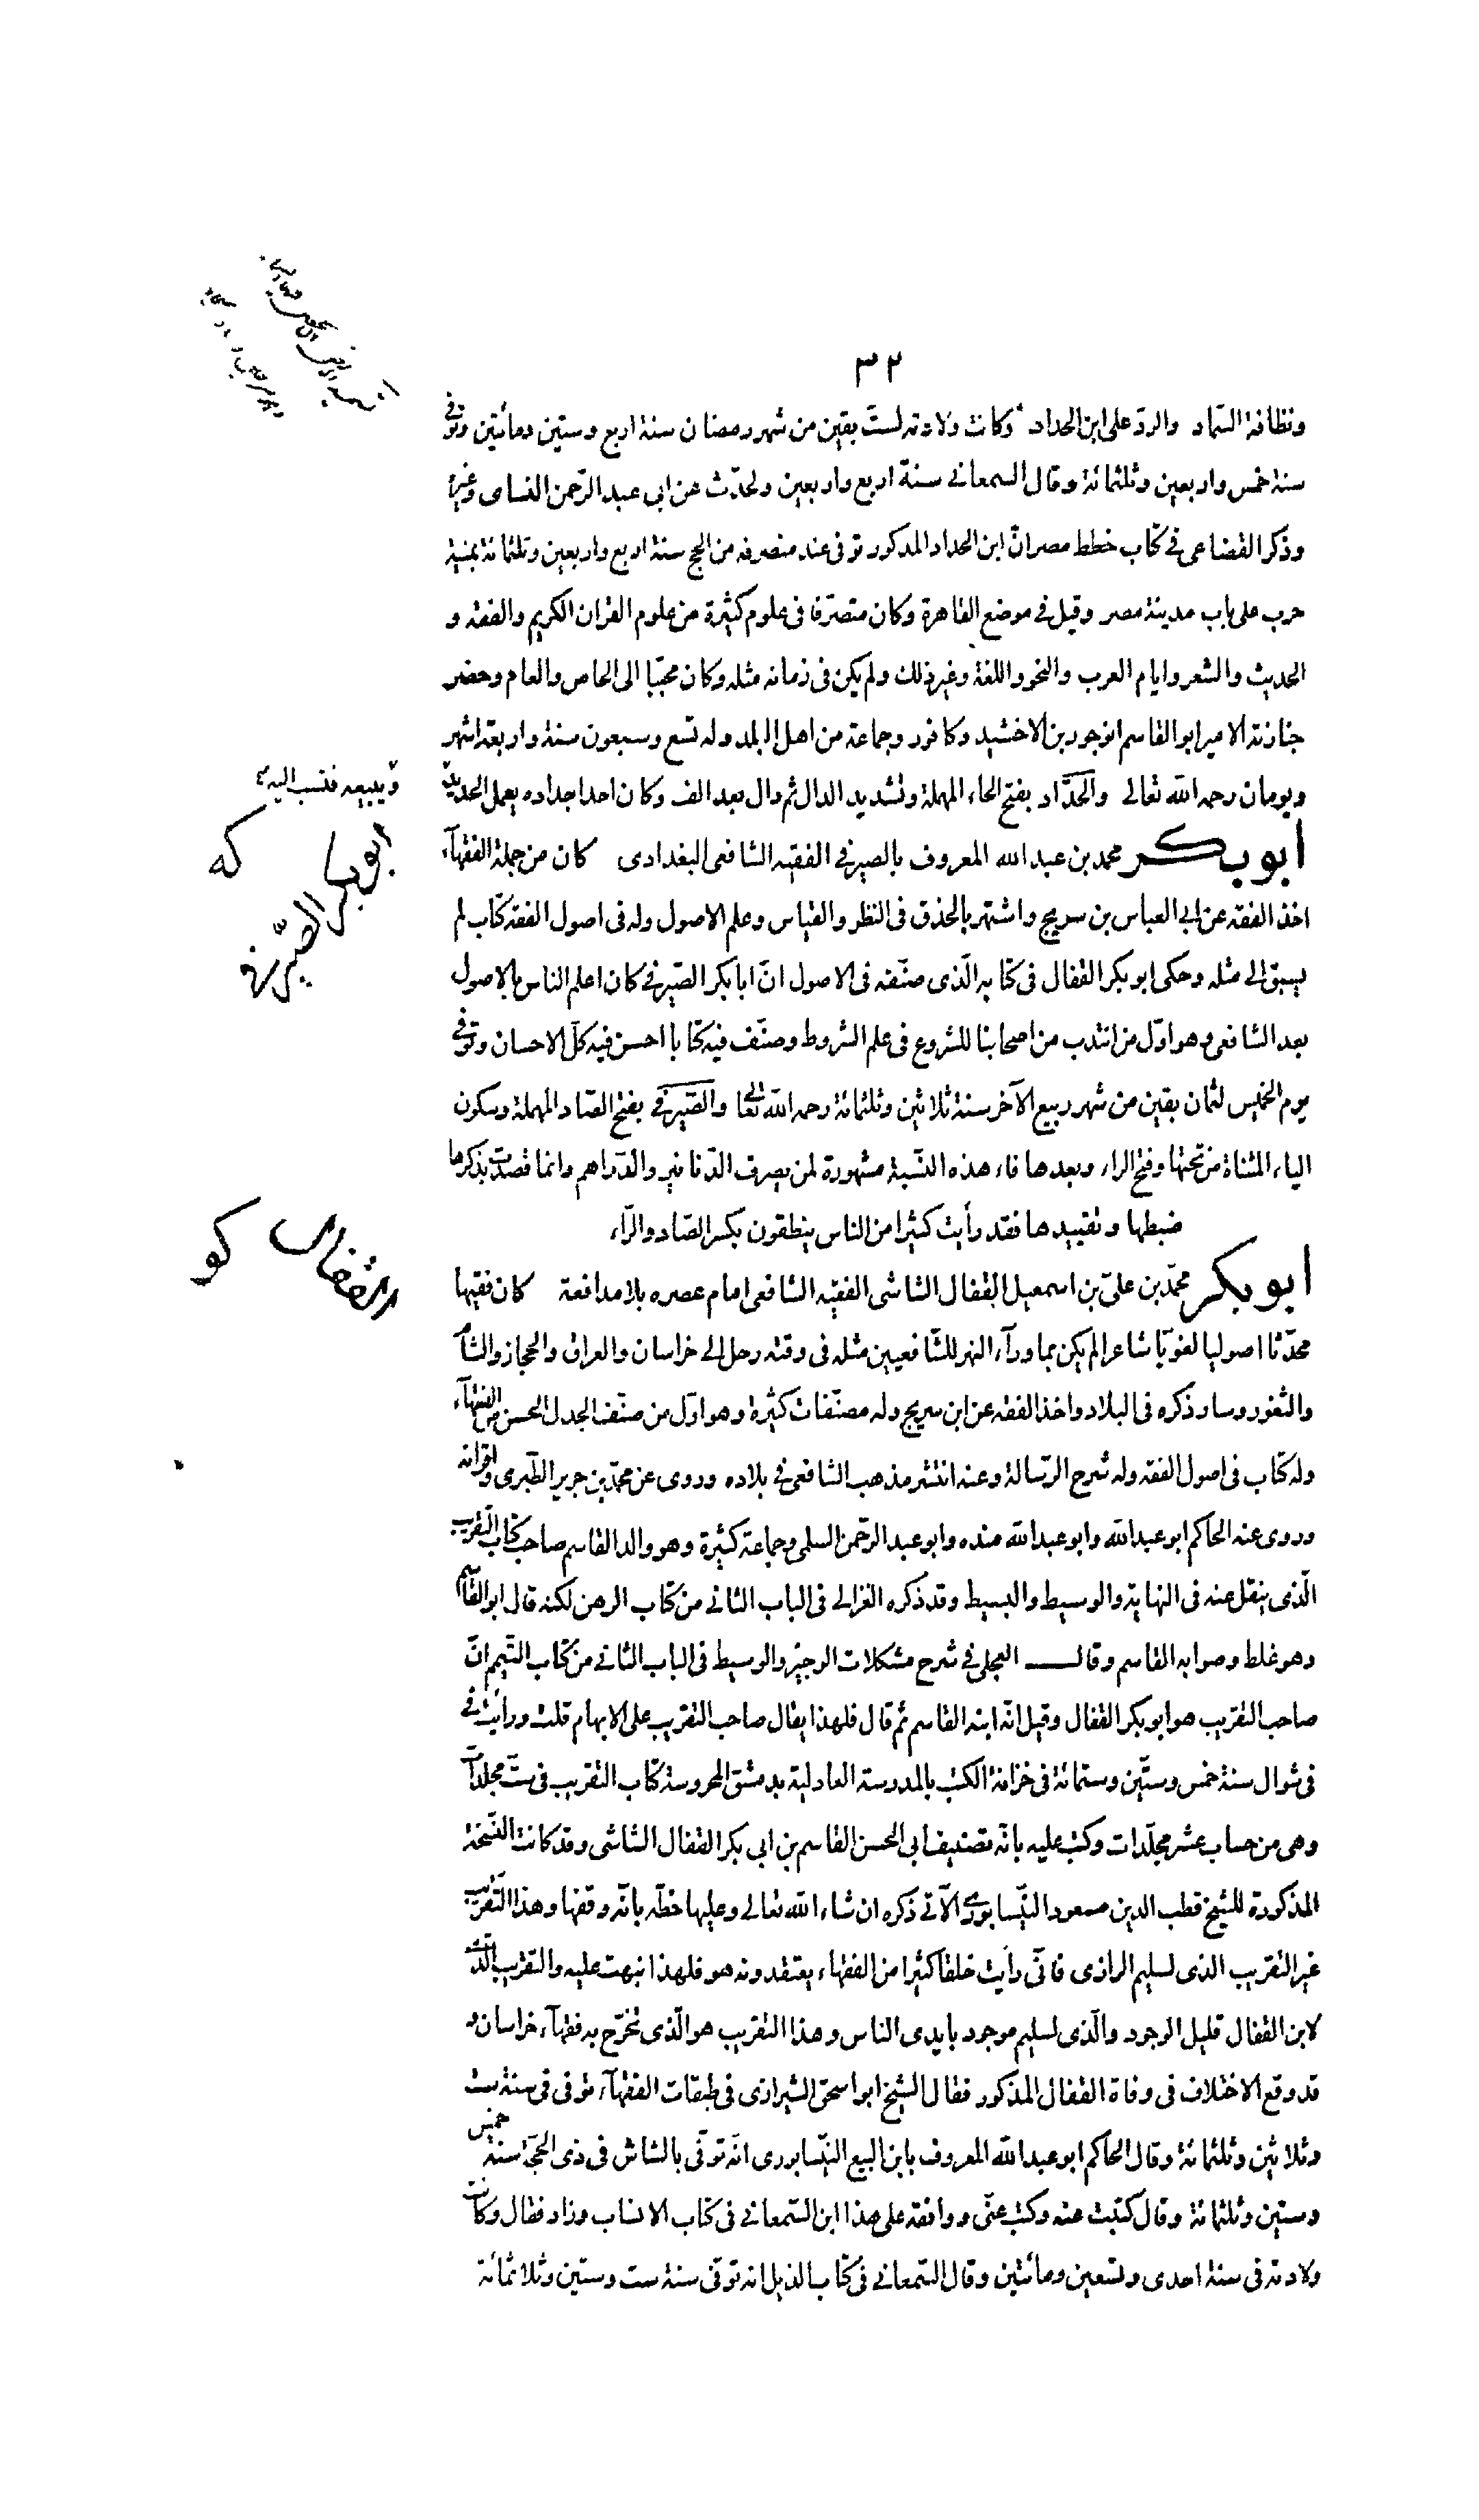 ٣٢
ونظافة السماد والرد على ابن الحداد وكانت ولادته لست بقين من شهر رمضان سنة اربع وستين ومائتين وتوفى
سنة خمس واربعين وثلثمائة وقال السمعانى سنة اربع واربعين ولحدّث عن ابى عبد الرحمن النساى وغيره
وذكر القضاعى فى كتاب خطط مصر انّ ابن الحداد المذكور توفى عند منصرفه من الحج سنة اربع واربعين وثلثمائة بمنية
حرب على باب مدينة مصر وقيل فى موضع القاهرة وكان متصرّفا فى علوم كثيرة من علوم القران الكريم والفقه و
الحديث والشعر وايام العرب والنحو واللغة وغير ذلك ولم يكن فى زمانه مثله وكان محبّبا الى الخاص والعام وحضر
جنازته الامير ابو القاسم انوجور بن الاخشيد وكافور وجماعة من اهل البلد وله تسع وسبعون سنة واربعة اشهر
ويومان رحمه الله تعالى والحدّاد بفتح الحاء المهملة وتشديد الدال ثم دال بعد الف وكان احد اجداده يعمل الحديد
ويبيعه فنسب اليه
ابو بكر محمد بن عبد الله المعروف بالصيرفى الفقيه الشافعى البغدادى كان من جملة الفقهآء
ابو بكر الصّيرفى
كه
اخذ الفقه عن ابى العباس بن سريج واشتهر بالحذق فى النظر والقياس وعلم الاصول وله فى اصول الفقه كتاب لم
يسبق الى مثله وحكى ابو بكر القفال فى كتابه الّذى صنّفه فى الاصول انّ ابا بكر الصّيرفى كان اعلم الناس بالاصول
بعد الشافعى وهو اوّل من انتدب من اصحابنا للشروع فى علم الشروط وصنّف فيه كتابا احسن فيه كلّ الاحسان وتوفى
يوم الخميس لثمان بقين من شهر ربيع الآخر سنة ثلاثين وثلثمائة رحمه الله تعالى والصّيرفى بفتح الصّاد المهملة وسكون
الياء المثناة من تحتها وفتح الراء وبعدها فاء هذه النّسبة مشهورة لمن يصرف الدّنانير والدّراهم وانما قصدت بذكرها
ضبطها وتقييدها فقد رأيت كثيرا من الناس ينطقون بكسر الصّاد والرّاء
القفال
كو
ابو بكر محمّد بن علىّ بن اسمعيل القفال الشاشى الفقيه الشافعى امام عصره بلا مدافعة كان فقيها
محدّثا اصوليا لغويّا شاعرا لم يكن بما ورآء النهر للشّافعيين مثله فى وقته رحل الى خراسان والعراق والحجاز والشام
والثغور وسار ذكره فى البلاد واخذ الفقه عن ابن سريج وله مصنّفات كثيرة وهو اوّل من صنّف الجدل الحسن من الفقهآء
وله كتاب فى اصول الفقه وله شرح الرّسالة وعنه انتشر مذهب الشافعى فى بلاده وروى عن محمّد بن جرير الطّبرى واقرانه
وروى عنه الحاكم ابو عبد الله وابو عبد الله منده وابو عبد الرّحمن السلمى وجماعة كثيرة وهو والد القاسم صاحب كتاب التّقريب
الّذى ينقل عنه فى النهاية والوسيط والبسيط وقد ذكره الغزالى فى الباب الثانى من كتاب الرهن لكنه قال ابو القاسم
وهو غلط وصوابه القاسم وقال العجلى فى شرح مشكلات الوجيز والوسيط فى الباب الثانى من كتاب التّيمم انّ
صاحب التقريب هو ابو بكر القفال وقيل انّه ابنه القاسم ثم قال فلهذا يقال صاحب التقريب على الابهام قلت ورأيت فى
فى شوال سنة خمس وستّين وستمائة فى خزانة الكتب بالمدرسة العادلية بدمشق المحروسة كتاب التقريب فى ستّ مجلدات
وهى من حساب عشر مجلّدات وكتب عليه بانّه تصنيف ابى الحسن القاسم بن ابى بكر القفال الشاشى وقد كانت النّسخة
المذكورة للشيخ قطب الدين مسعود النّيسابورى الآتى ذكره ان شاء الله تعالى وعليها خطّه بانّه وقفها وهذا التّقريب
غير التقريب الذى لسليم الرازى فانّى رأيت خلقا كثيرا من الفقهاء يعتقدونه هو فلهذا نبهت عليه والتقريب الّذى
لابن القفال قليل الوجود والّذى لسليم موجود بايدى الناس وهذا التقريب هو الّذى تخرّج به فقهآء خراسان و
قد وقع الاختلاف فى وفاة القفال المذكور فقال الشيخ ابو اسحق الشيرازى فى طبقات الفقهآء توفى فى سنة ست
وثلاثين وثلثمائة وقال الحاكم ابو عبد الله المعروف بابن البيع النّيسابورى انّه توفّى بالشاش فى ذى الحجّة سنة خمس
وستين وثلثمائة وقال كتبت عنه وكتب عنّى ووافقه على هذا ابن السّمعانى فى كتاب الانساب وزاد فقال وكانت
ولادته فى سنة احدى وتسعين ومائتين وقال السّمعانى فى كتاب الذيل انه توفّى سنة ست وستّين وثلاثمائة